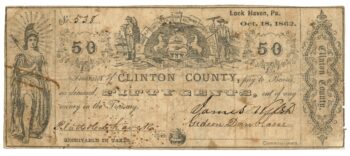 Lock Haven, Pa.
Oct. 18, 1862.
No. 538
50
50
Treasurer of CLINTON COUNTY, pay to Bearer
on demand, FIFTY CENTS, out of any
money in the Treasury.
James
RECEIVABLE IN TAXES.
Commissioners.
Clinton County.